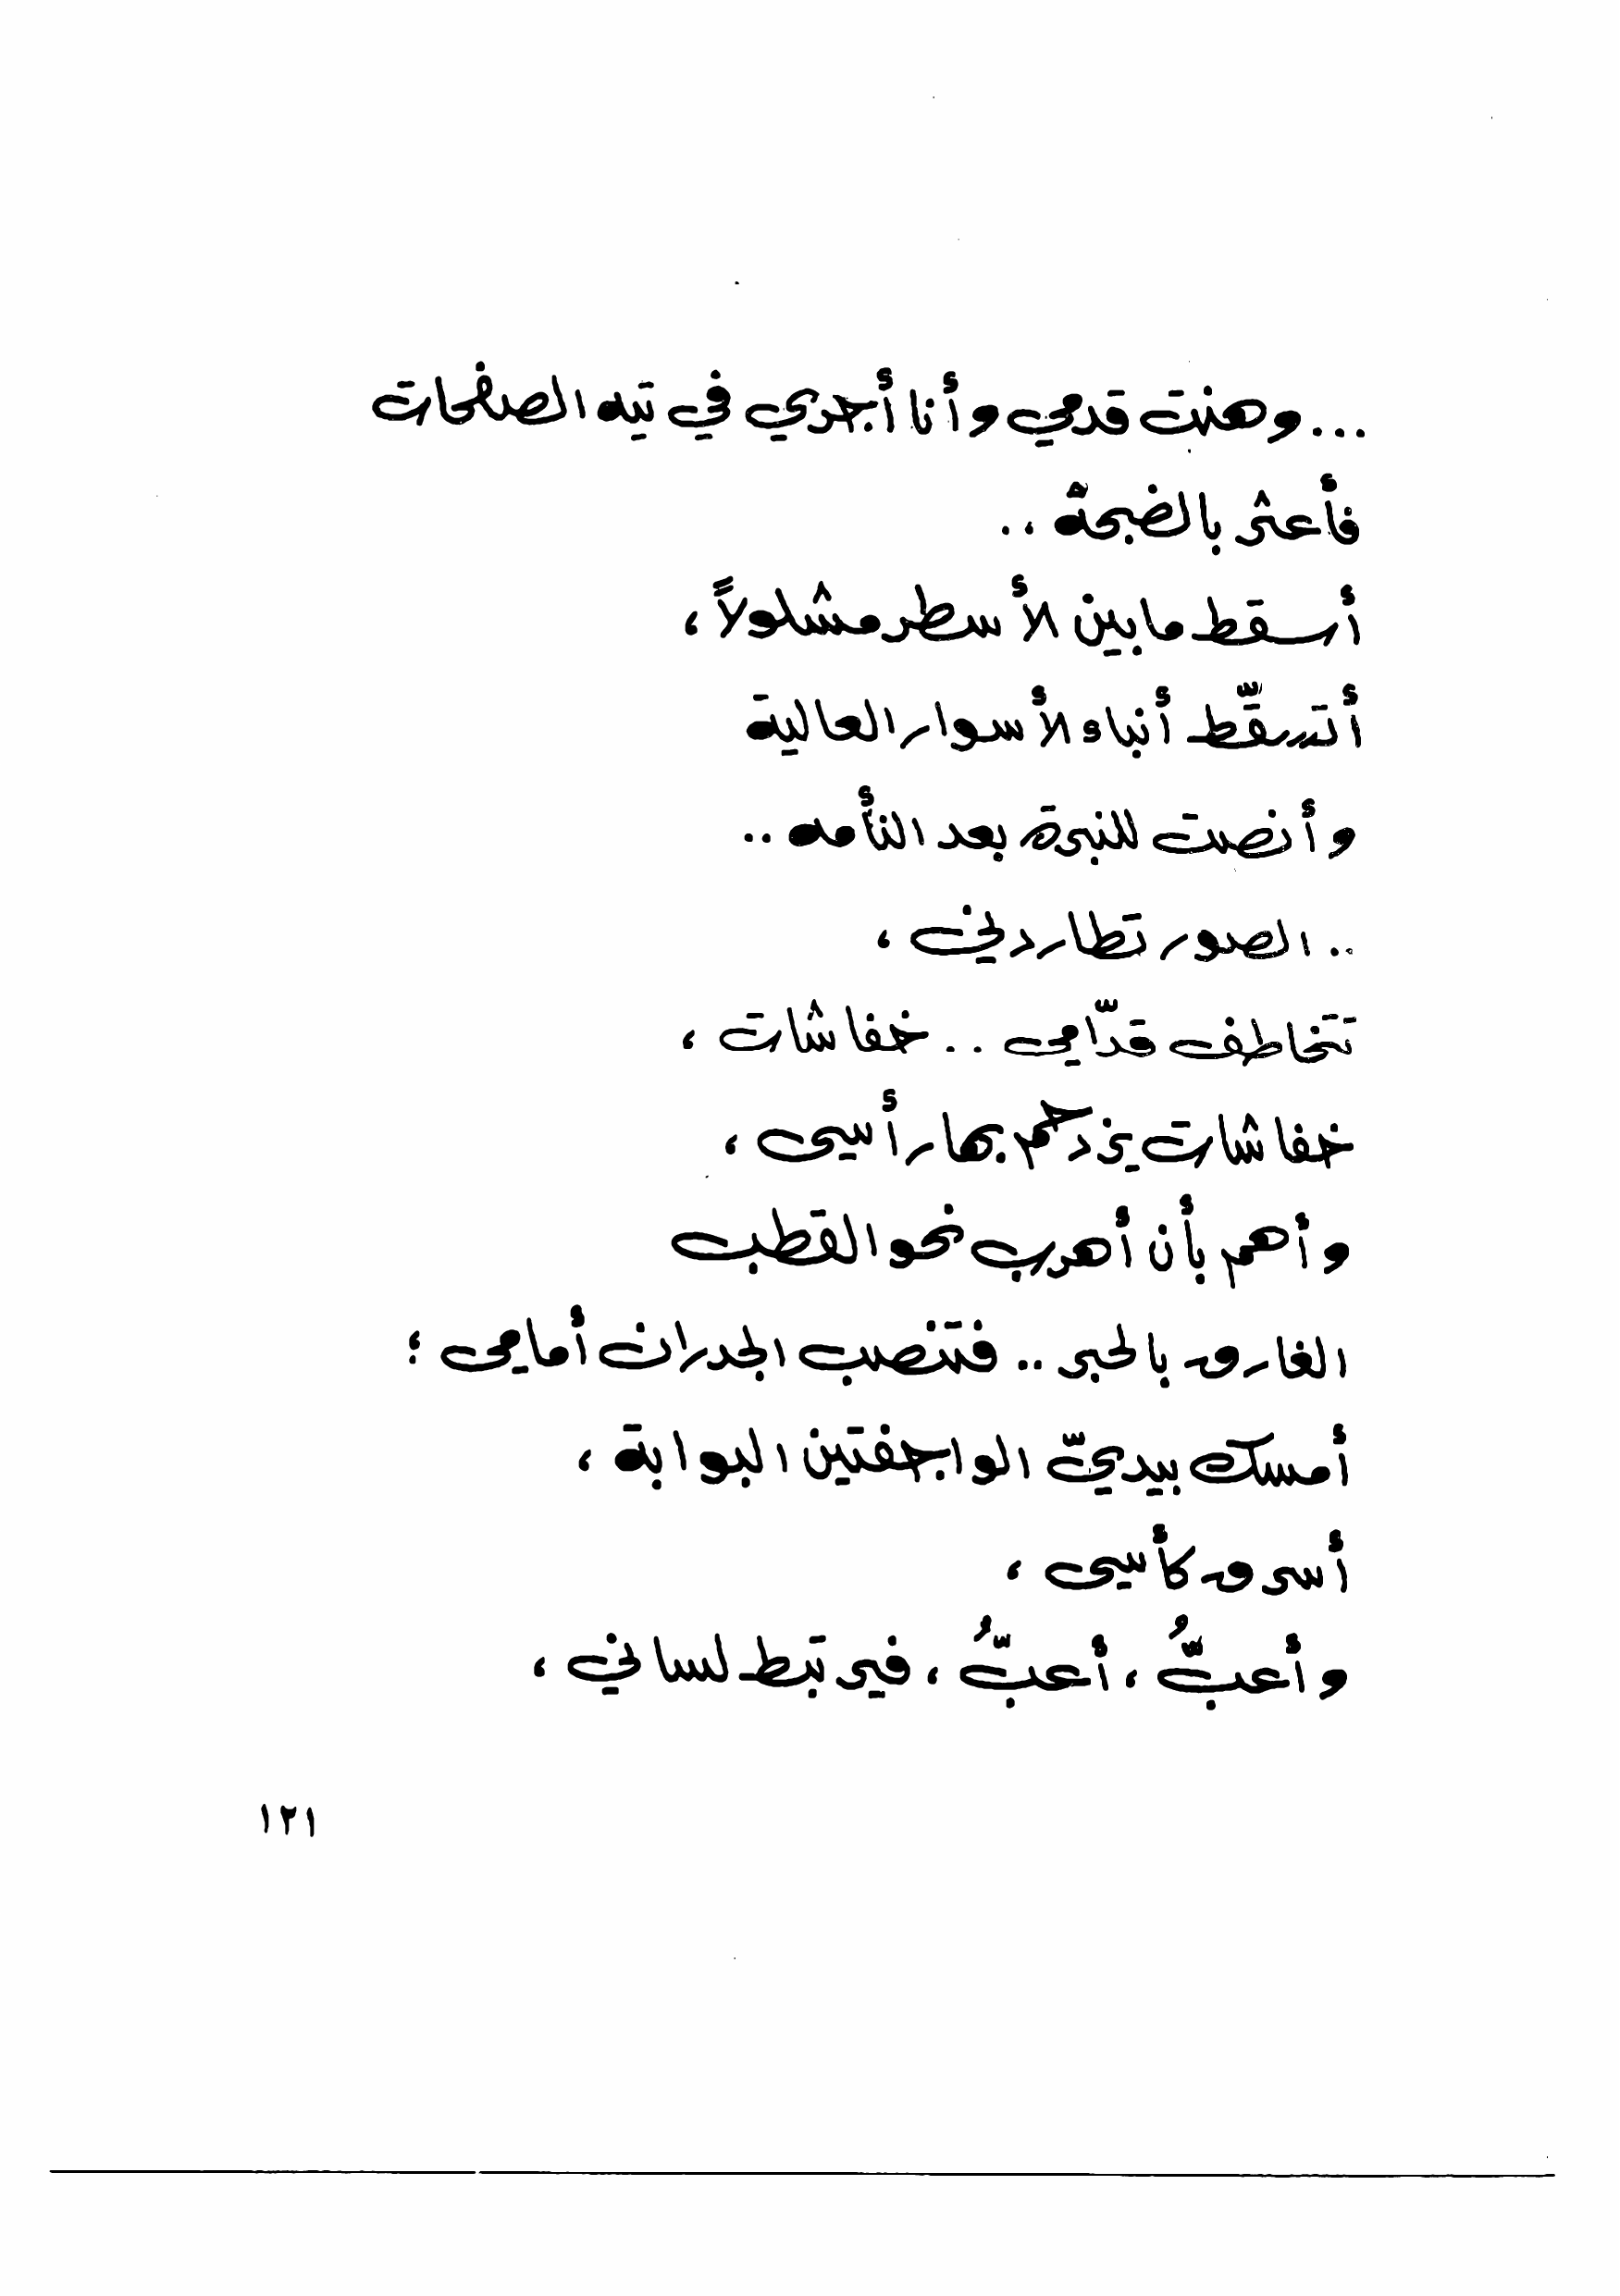 ... وهنت قدمي وأنا أجري في تيه الصفحات
فأعثر بالضجة ،.
أسقط ما بين الأسطر مشلولاً ،
أتسقّط أنباء الأسوار العالية
وأنصت للنبرة بعد النأمه ..
.. الصور تطاردني ،
تتخاطف قدّامي .. خفاشات ،
خفاشات يزدحم بها رأسي ،
وأهم بأن أهرب نحو القطب
الغارق بالحبر .. فتنتصب الجدران أمامي ؛
أمسك بيديّ الواجفتين البوابة ،
أسرق كأسي ،
وأعبُّ ، أعبُّ ، فيرتبط لساني ،
١٢١